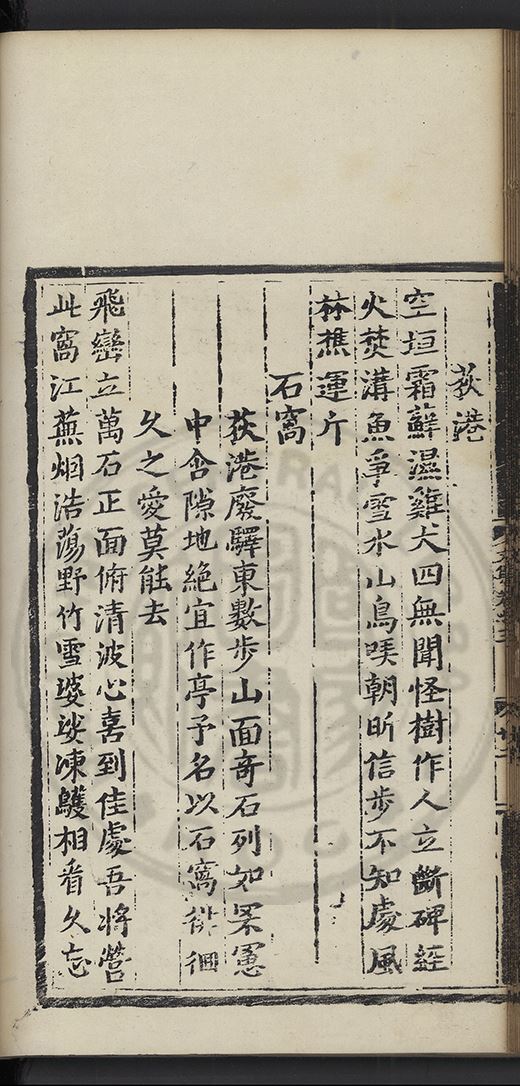 荻港
空垣霜蘚濕雞犬四無聞怪樹作人立斷碑經
火焚溝魚爭雪水山鳥喚朝昕信步不知處風
林樵運斤
石窩
荻港廢驛東數步山面奇石列如罘罳
中含隙地絕宜作亭予名以石窩徘徊
久之愛莫能去
飛巒立萬石正面俯清波心喜到佳處吾將營
此窩江蕪烟浩蕩野竹雪婆娑凍鸌相看久忘